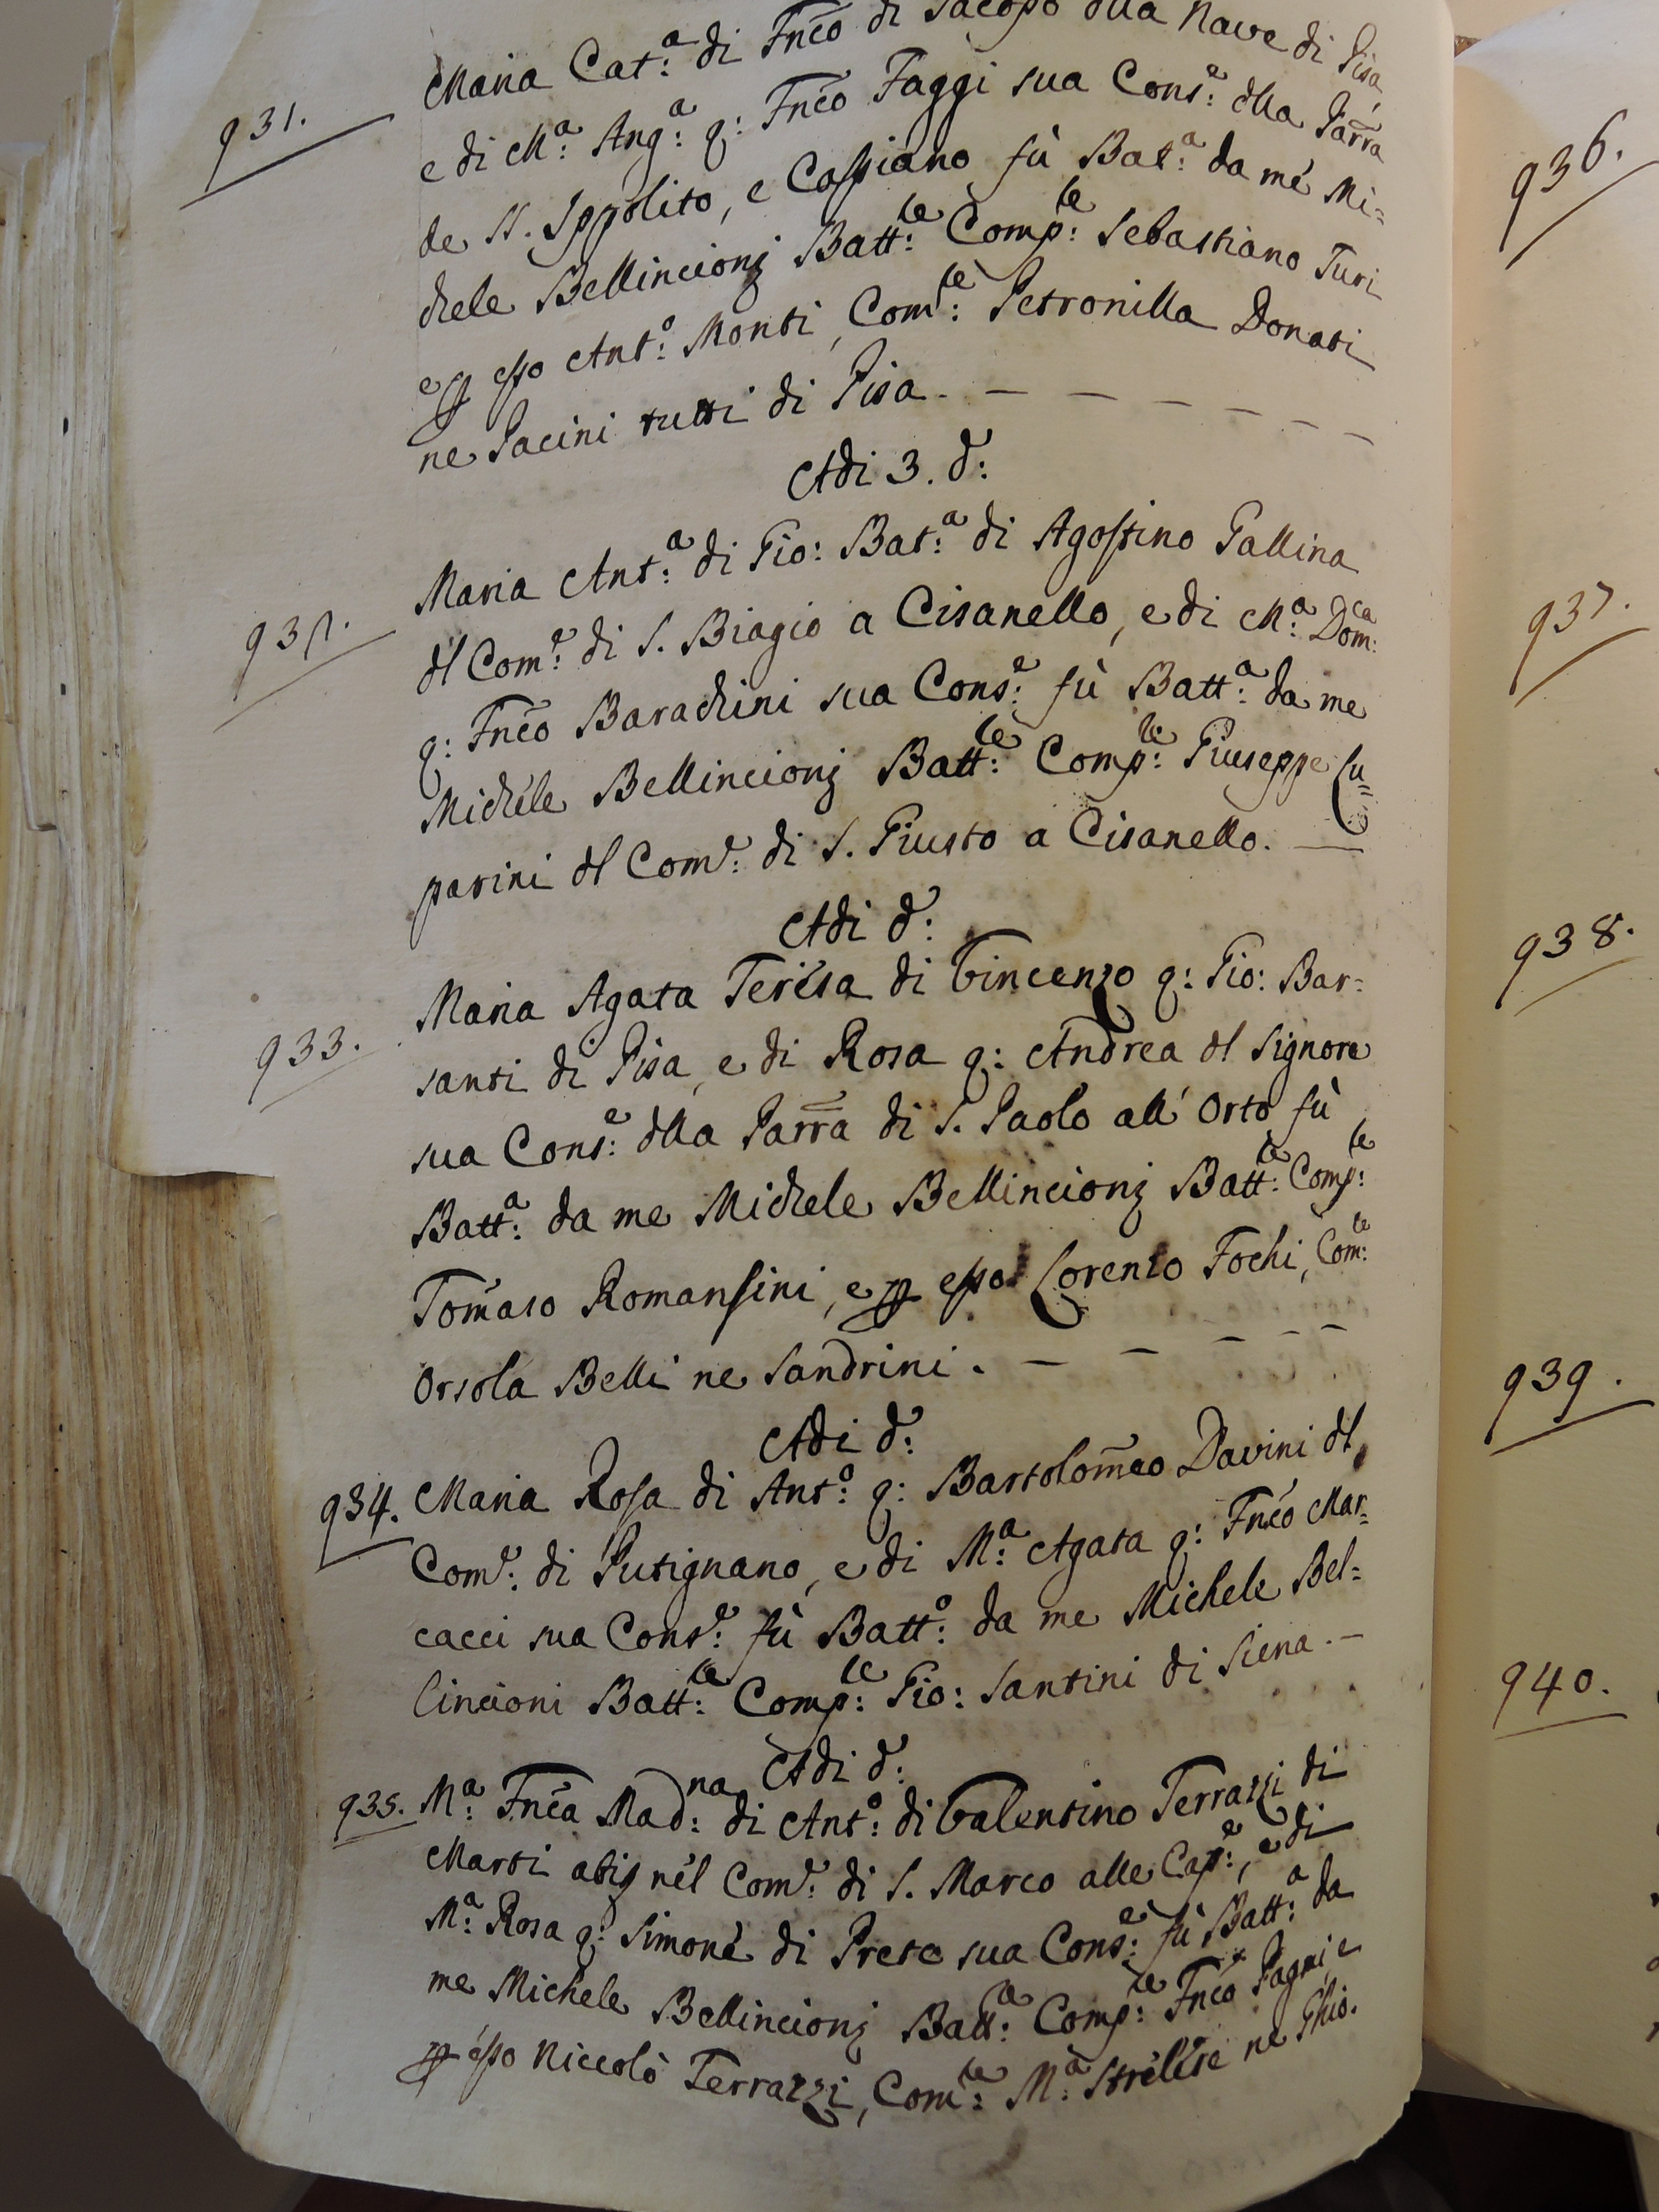 931. Maria Cat:a di Fnēo di Jacopo dlla Nave di Pisa,
e di M:a Ang:a q: Fnēo Faggi sua Cons:e dlla Parr̄a
de SS. Ippolito, e Cassiano fù Bat:a da mé Mi=
chele Bellincionj Batt:re Comp:re Sebastiano Turi
e p esso Ant:o Monti, Com:re Petronilla Donati
ne Pacini tutti di Pisa. — — — — — —
Adi 3. d:o
932. Maria Ant:a di Gio: Bat:a di Agostino Gallina
dl Com:e di S. Biagio a Cisanello, e di M:a Dom:ca
q: Fnēo Barachini sua Cons:e fù Batt:a da me
Michele Bellincionj Batt:re Comp:re Giuseppe Lu=
parini dl Com:e di S. Giusto a Cisanello. —
Adi d:o
933. Maria Agata Terésa di Vincenzo q: Gio: Bar=
santi di Pisa, e di Rosa q: Andrea dl Signore
sua Cons:e dlla Parr̄a di S. Paolo all' Orto fù
Batt:a da me Michele Bellincionj Batt:re Comp:re
Tom̄aso Romansini, e p esso Lorenzo Fochi, Com:re
Orsola Belli ne Sandrini. — — — — —
Adi d:o
934. Maria Rosa di Ant:o q: Bartolom̄eo Davini dl
Com:e di Putignano, e di M:a Agata q: Fnēo Mar=
cacci sua Cons:e fù Batt:o da me Michele Bel=
lincioni Batt:re Comp:re Gio: Santini di Siena. —
Adi d:o
935. M:a Fnēa Mad:na di Ant:o di Valentino Terrazzi di
Marti abiz nél Com:e di S. Marco alle Cap:e, e di
M:a Rosa q: Simoné di Prete sua Cons:e fù Batt:a da
me Michele Bellincionj Batt:re Comp:re Fnēo Pagni e
p ésso Niccolò Terrazzi, Com:re M:a ne Ghio.
936.
937.
938.
939.
940.